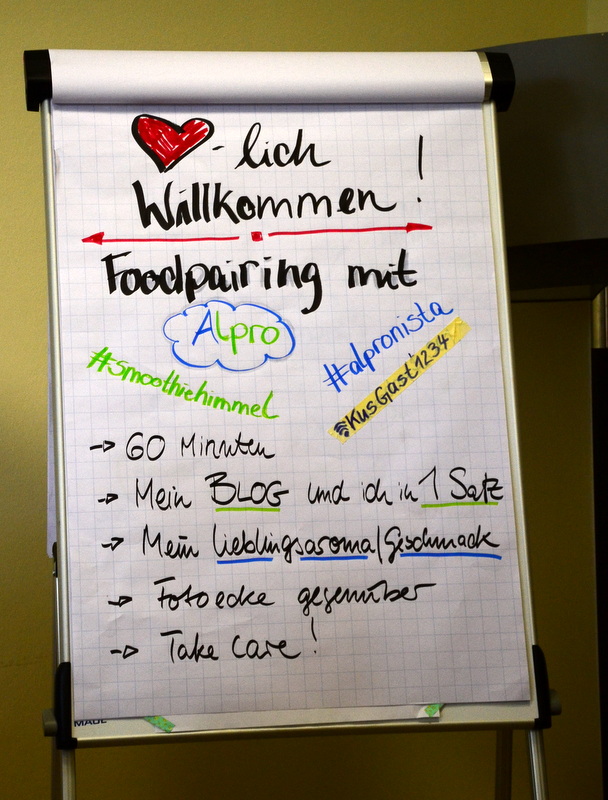 -lich
Willkommen!
Foodpairing mit
Alpro
#smoothiehimmel
#alpronista
KusGast1234
→ 60 Minuten
→ Mein BLOG und ich in 1 Satz
→ Mein Lieblingsaroma/Geschmack
→ Fotoecke gegenüber
→ Take Care!
MAUL